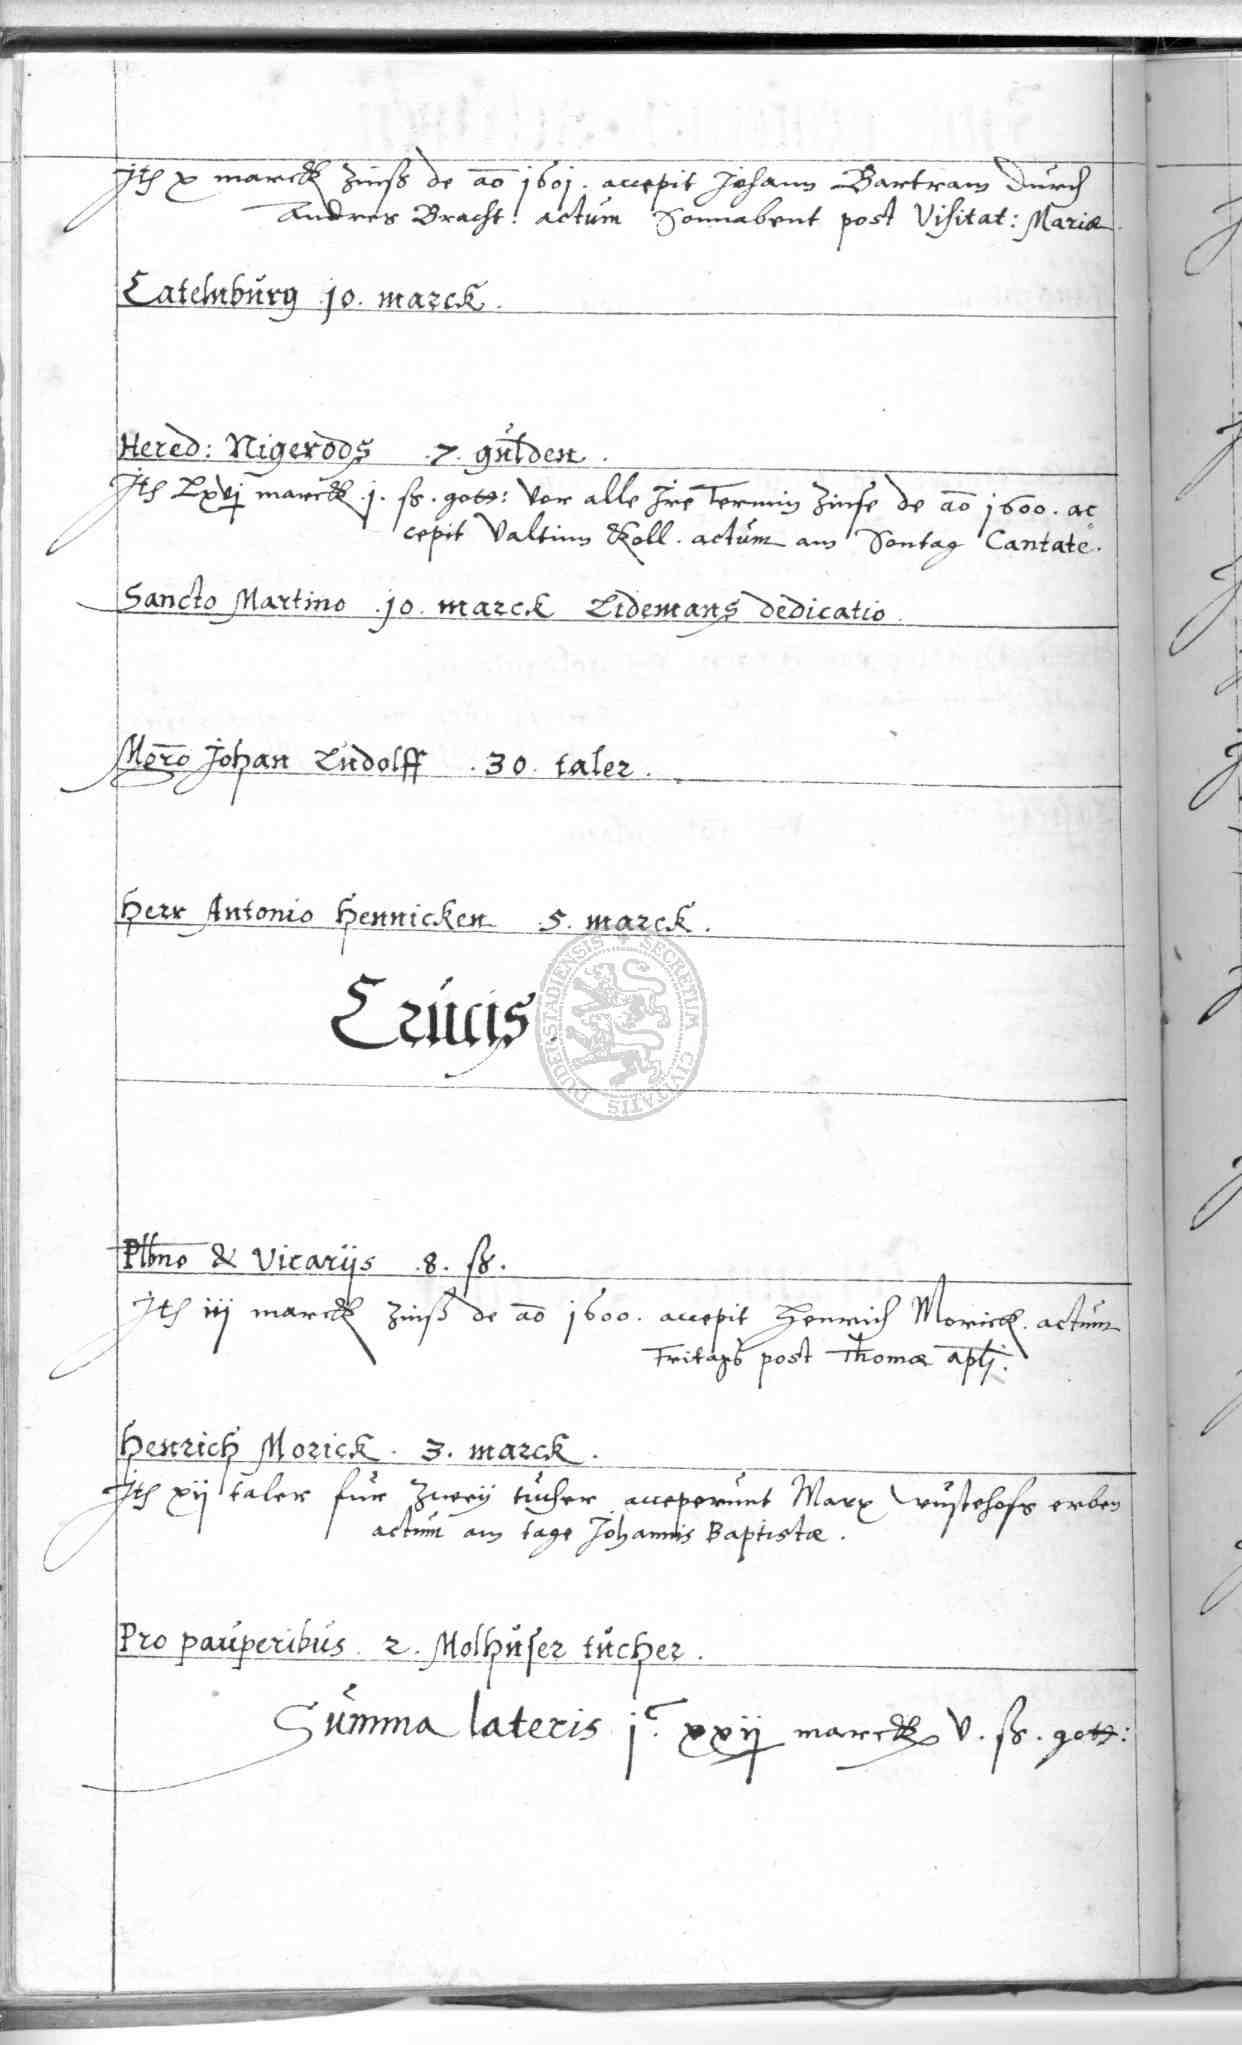 Jtem x marck zinß de ao 1601. accepit Johann Bartram durch
Andres Bracht. actum Sonnabent post Visitat: Mariæ
Catelnburg 10. marck.
Hered: Nigerods .7. gulden.
Jtem Lxvij marck .j. ß. gott: vor alle Jre Termin zinse de ao 1600. ac
cepit Valtinn Koll. actum am Sontag Cantate.
Sancto Martino .10. marck Lidemans dedicatio.
Mgro Johan Ludolff .30. taler.
Herr Antonio Hennicken .5. marck.
Crucis.
Plbno & Vicarijs .8. ß.
Jtem iij marck zinß de ao 1600. accepit Henrich Morick. actum
Fritags post Thomæ apli.
Henrich Morick. 3. marck.
Jtem xij taler fur zweij tucher acceperunt Marx Wustehofs erben
actum am tage Johannis Baptistæ.
Pro pauperibus. 2. Molhuser tucher.
Summa lateris jc. xxij marck v. ß. gott:
SECRETUM CIVITATIS DUDERSTADIENSIS